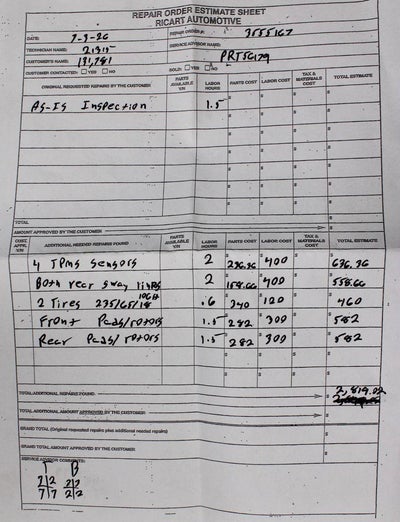 REPAIR ORDER ESTIMATE SHEET
RICART AUTOMOTIVE
DATE: 7-3-26 REPAIR ORDER #: 3555167
TECHNICIAN NAME: 21315 SERVICE ADVISOR NAME:
CUSTOMER'S NAME: 131,781 PRT5G179
CUSTOMER CONTACTED: YES NO SOLD: YES NO
ORIGINAL REQUESTED REPAIRS BY THE CUSTOMER PARTS AVAILABLE Y/N LABOR HOURS PARTS COST LABOR COST TAX & MATERIALS COST TOTAL ESTIMATE
AS-IS Inspection 1.5
TOTAL
AMOUNT APPROVED BY THE CUSTOMER
CUST. APPR. Y/N ADDITIONAL NEEDED REPAIRS FOUND PARTS AVAILABLE Y/N LABOR HOURS PARTS COST LABOR COST TAX & MATERIALS COST TOTAL ESTIMATE
4 TPMS Sensors 2 $236.36 $400 $636.36
Both rear sway links 2 $158.66 $400 $558.66
106H
2 Tires 235/65/18 .6 $340 $120 $460
Front Pads/rotors 1.5 $282 $300 $582
Rear Pads/rotors 1.5 $282 $300 $582
TOTAL ADDITIONAL REPAIRS FOUND $2,819.02
TOTAL ADDITIONAL AMOUNT APPROVED BY THE CUSTOMER $
GRAND TOTAL (Original requested repairs plus additional needed repairs) $
GRAND TOTAL AMOUNT APPROVED BY THE CUSTOMER $
SERVICE ADVISOR COMMENTS:
T B
7|2 2|2
7|7 2|2